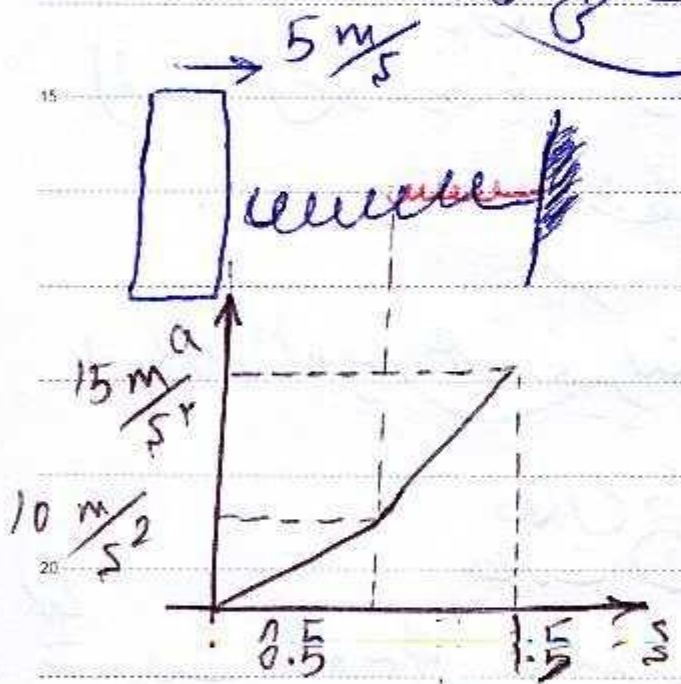 5 m/s
15
a
15 m/s²
10 m/s²
20
0.5 1.5 s